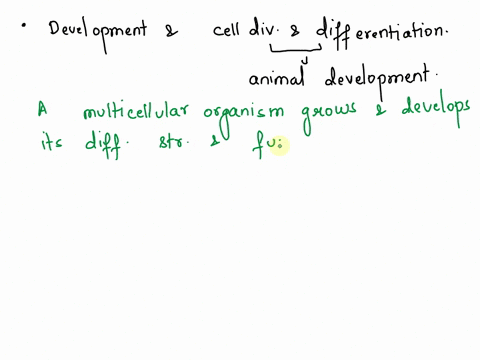 • Development & cell div. & differentiation.
animal development.
A multicellular organism grows & develops
its diff. str. & fu